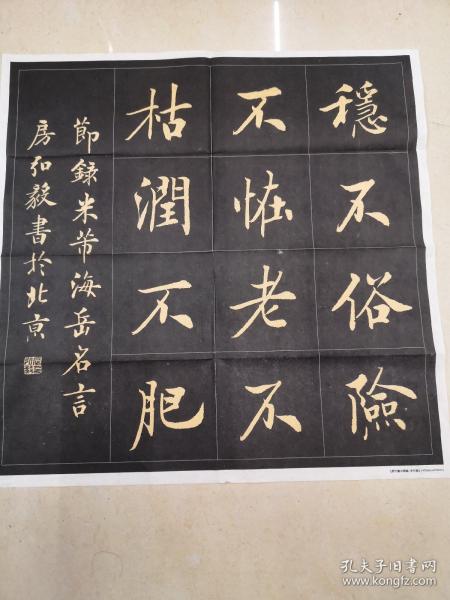 穩不俗險
不怪老不
枯潤不肥
節錄米芾海岳名言
房弘毅書於北京
孔夫子旧书网
www.kongfz.com